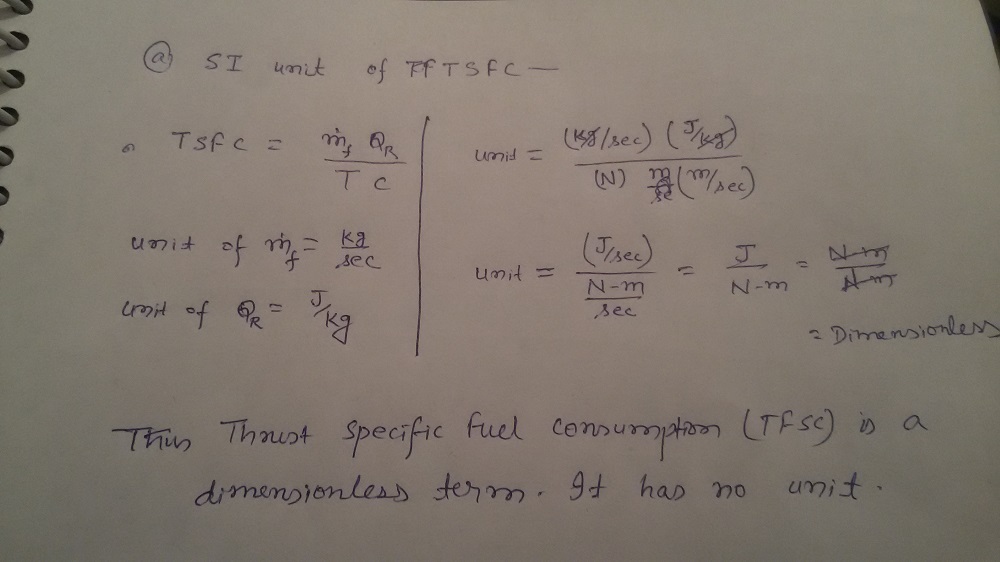 (a) SI unit of TFTSFC —
TSFC = ṁf QR / T C
unit of ṁf = kg / sec
unit of QR = J/kg
unit = (kg/sec) (J/kg) / (N) (m/sec)
unit = (J/sec) / (N-m / sec) = J / N-m = N-m / N-m
= Dimensionless
Thus Thrust specific fuel consumption (TFSC) is a
dimensionless term. It has no unit.